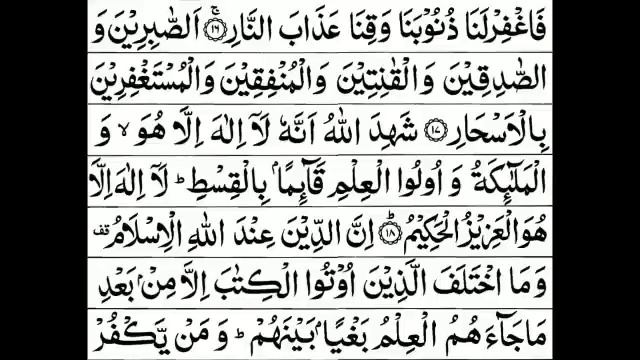 فَاغْفِرْلَنَا ذُنُوْبَنَا وَقِنَا عَذَابَ النَّارِ ۚ﴿۱۶﴾ اَلصّٰبِرِيْنَ وَ
الصّٰدِقِيْنَ وَالْقٰنِتِيْنَ وَالْمُنْفِقِيْنَ وَالْمُسْتَغْفِرِيْنَ
بِالْاَسْحَارِ ﴿۱۷﴾ شَهِدَ اللّٰهُ اَنَّهٗ لَاۤ اِلٰهَ اِلَّا هُوَ ۙ وَ
الْمَلٰٓئِكَةُ وَ اُولُوا الْعِلْمِ قَآئِمًۢا بِالْقِسْطِ ؕ لَاۤ اِلٰهَ اِلَّا
هُوَ الْعَزِيْزُ الْحَكِيْمُ ؕ﴿۱۸﴾ اِنَّ الدِّيْنَ عِنْدَ اللّٰهِ الْاِسْلَامُ قف
وَ مَا اخْتَلَفَ الَّذِيْنَ اُوْتُوا الْكِتٰبَ اِلَّا مِنْۢ بَعْدِ
مَا جَآءَ هُمُ الْعِلْمُ بَغْيًۢا بَيْنَهُمْ ؕ وَ مَنْ يَّكْفُرْ